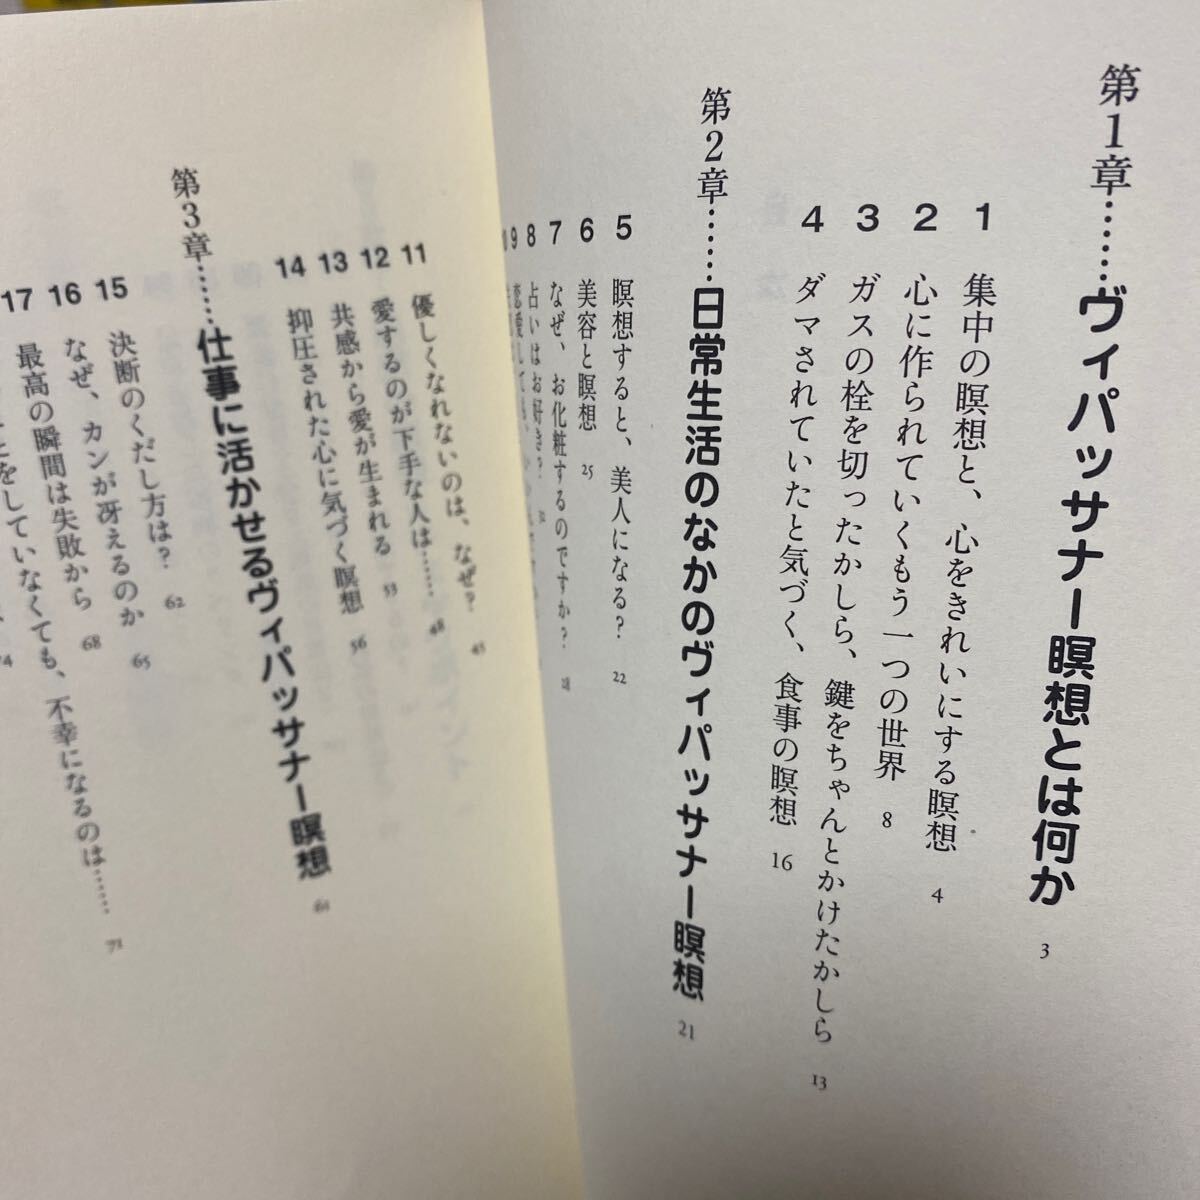 第1章……ヴィパッサナー瞑想とは何か 3
1 集中の瞑想と、心をきれいにする瞑想 4
2 心に作られていくもう一つの世界 8
3 ガスの栓を切ったかしら、鍵をちゃんとかけたかしら 13
4 ダマされていたと気づく、食事の瞑想 16
第2章……日常生活のなかのヴィパッサナー瞑想 21
5 瞑想すると、美人になる? 22
6 美容と瞑想 25
7 なぜ、お化粧するのですか? 28
8 占いはお好き? 32
9 恋愛しても、
10
11 優しくなれないのは、なぜ? 45
12 愛するのが下手な人は…… 48
13 共感から愛が生まれる 53
14 抑圧された心に気づく瞑想 56
第3章……仕事に活かせるヴィパッサナー瞑想 61
15 決断のくだし方は? 62
16 なぜ、カンが冴えるのか 65
17 最高の瞬間は失敗から 68
をしていなくても、不幸になるのは…… 71
74